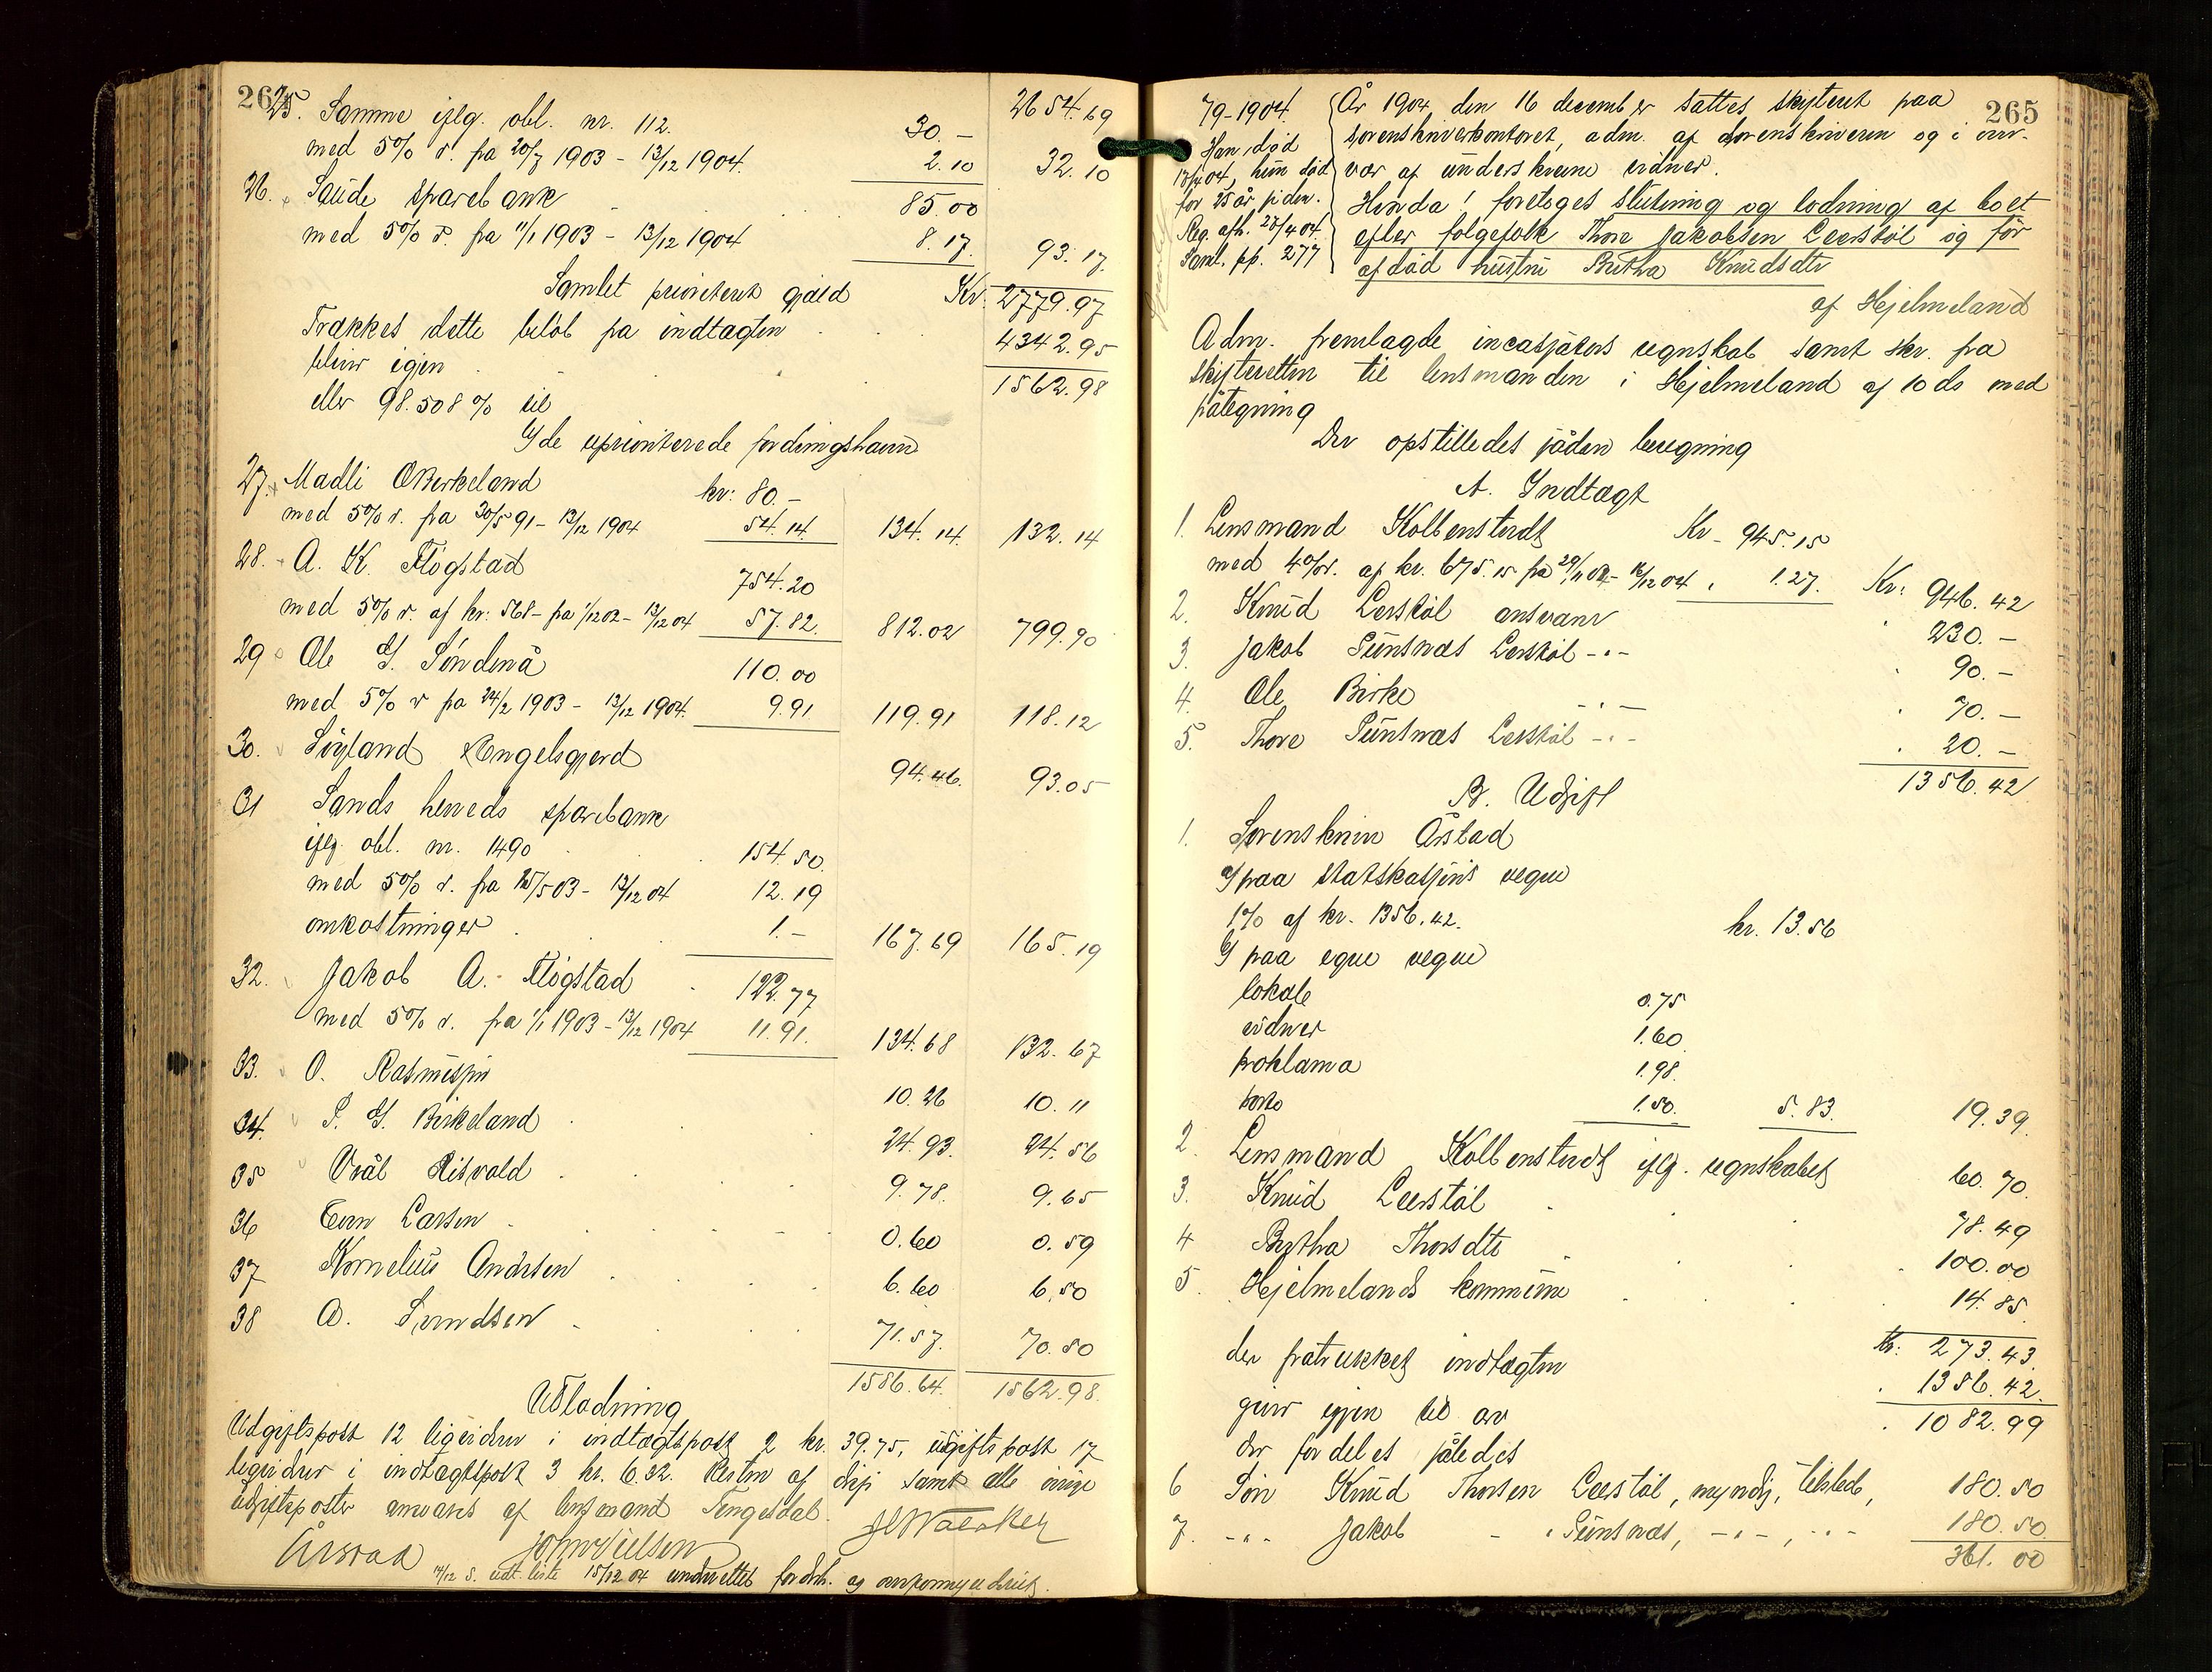 264
2654.69
25. Samme iflg. obl. nr. 112. 30.-
med 5% r. fra 20/7 1903 - 13/12 1904. 2.10 32.10
26. Saude sparebank 85.00
med 5% r. fra 11/1 1903 - 13/12 1904 8.17. 93.17.
Samlet prioritert gjæld Kr. 2779.97
Trækkes dette beløb fra indtægten 4342.95
bliver igjen 1562.98
eller 98.508% til
de uprioriterede fordringshavere
27. Madli O Birkeland kr: 80.-
med 5% r. fra 30/5 91 - 13/12 1904 54.14. 134.14. 132.14
28. A. K. Fløgstad 754.20
med 5% r. af kr: 568- fra 1/12 02 - 13/12 04 57.82. 812.02 799.90
29 Ole G. Søndenå 110.00
med 5% r fra 24/2 1903 - 13/12 1904. 9.91 119.91 118.12
30. Løyland & Engelsgjerd 94.46. 93.05
31 Sands herreds sparebank
iflg. obl. nr. 1490 154.50.
med 5% r. fra 15/5 03 - 13/12 04 12.19
omkostninger 1.- 167.69 165.19
32. Jakob A. Fløgstad 122.77
med 5% r. fra 1/1 1903 - 13/12 1904 11.91. 134.68 132.67
33. O. Rasmussen 10.26 10.11
34. S. G. Birkeland 24.93. 24.56
35 Vrål Risvold 9.78. 9.65
36 Even Larsen 0.60 0.59
37 Kornelius Andresen 6.60 6.50
38 A. Svendsen 71.57. 70.50
1586.64. 1562.98.
Udlodning
Udgiftspost 12 ligvideres i indtægtspost 2 kr. 39.75, udgiftspost 17
ligvideres i indtægtspost 3 kr. 6.32. Resten af disse samt alle øvrige
udgiftsposter anvises af lensmand Tengesdal.
Årstad John Nielsen
14/12 S. udt. liste 15/12 04 underrettet fordrh. og
265
79-1904.
Han død
13/4 04, hun død
for 25 år siden.
Reg. afh. 27/4 04
Saml. pp. 277
År 1904 den 16 december sattes skifteret paa
sorenskriverkontoret, adm. af sorenskriveren og i nær-
vær af underskrevne vidner.
Hvorda! foretoges slutning og lodning af boet
efter folgefolk Thore Jakobsen Leerstøl og før
afdød hustru Brita Knudsdtr
af Hjelmeland
Adm. fremlagde incassators regnskab samt skr. fra
skifteretten til lensmanden i Hjelmeland af 10 ds med
påtegning
Der opstilledes sådan beregning
A. Indtægt
1. Lensmand Kolbenstvedt Kr - 945.15
med 4% r. af kr. 675.15 fra 29/11 04 - 16/12 04. 1.27. Kr: 946.42
2. Knud Leerstøl ansvarer 230.-
3. Jakob Punsnæs Leerstøl -"- 90.-
4. Ole Birke -"- 70.-
5. Thore Punsnæs Leerstøl -"- 20.-
1356.42
B. Udgift
1. Sorenskriver Årstad
paa statskassens vegne
1% af kr. 1356.42. kr. 13.56
paa egne vegne
lokale 0.75
vidner 1.60
proklama 1.98.
porto 1.50. 5.83. 19.39.
2. Lensmand Kolbenstvedt iflg. regnskabet 60.70.
3. Knud Leerstøl 78.49
4 Brita Thorsdtr 100.00
5. Hjelmelands kommune 14.85.
Kr: 273.43.
der fratrukket indtægten 1356.42.
giver igjen til arv 1082.99
der fordeles således
6 Søn Knud Thorsen Leerstøl, myndig, tilstede, 180.50
7. -"- Jakob - " Punsnæs, -"-, -"- 180.50
361.00